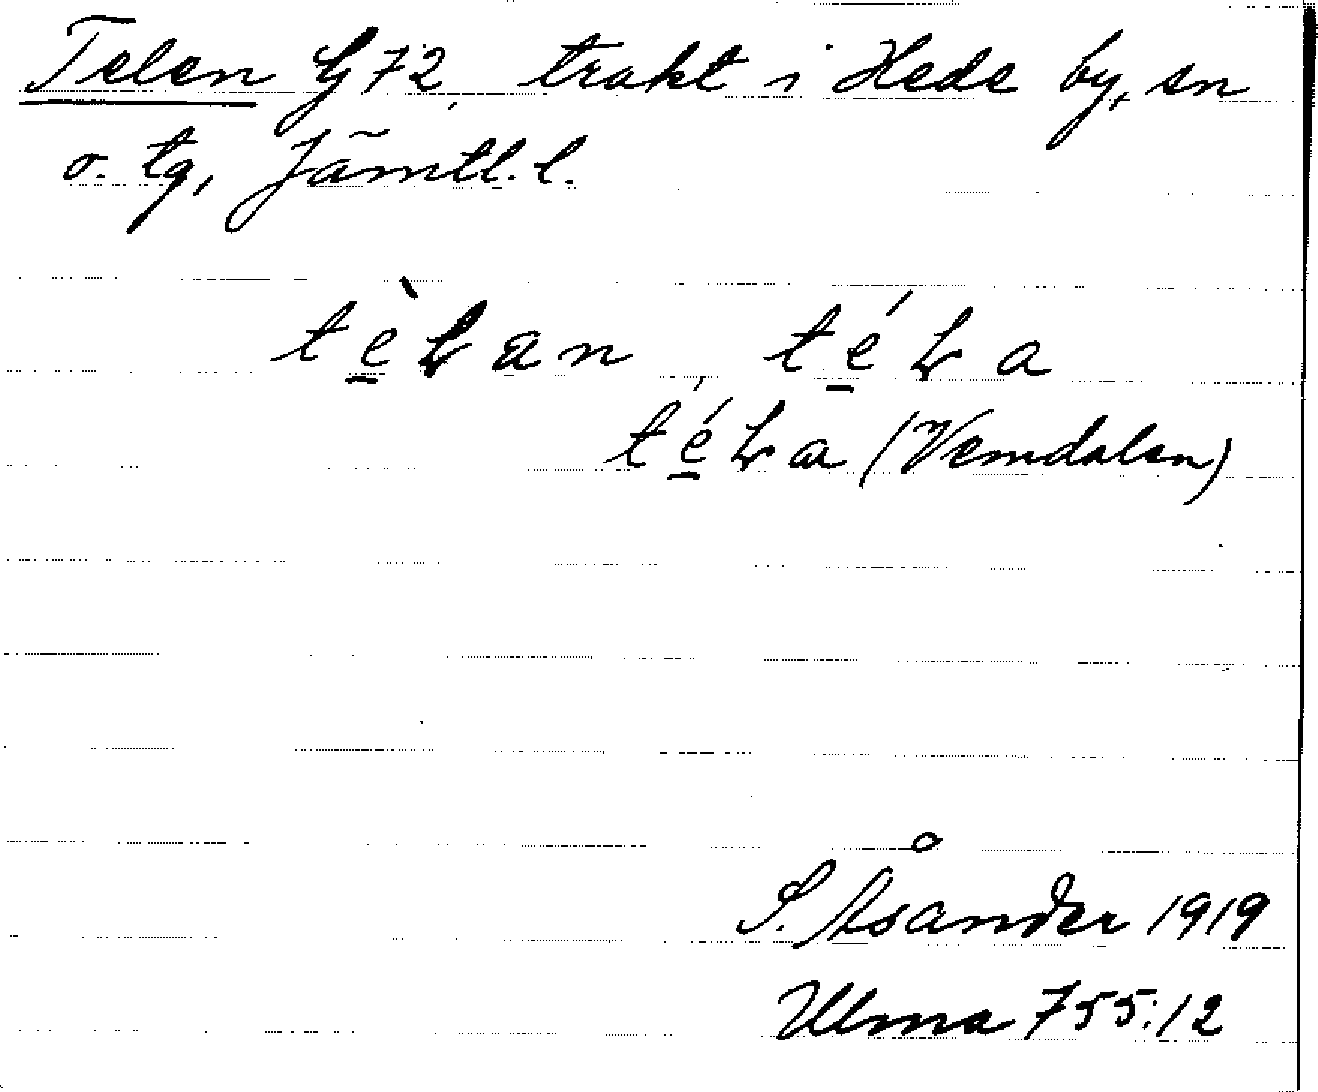 Telen G72, trakt i Hede by, sn
o. tg, Jämtl. l.
tèƚan, téƚa
téƚa (Vemdalen)
S. Åsander 1919
Ulma 755:12